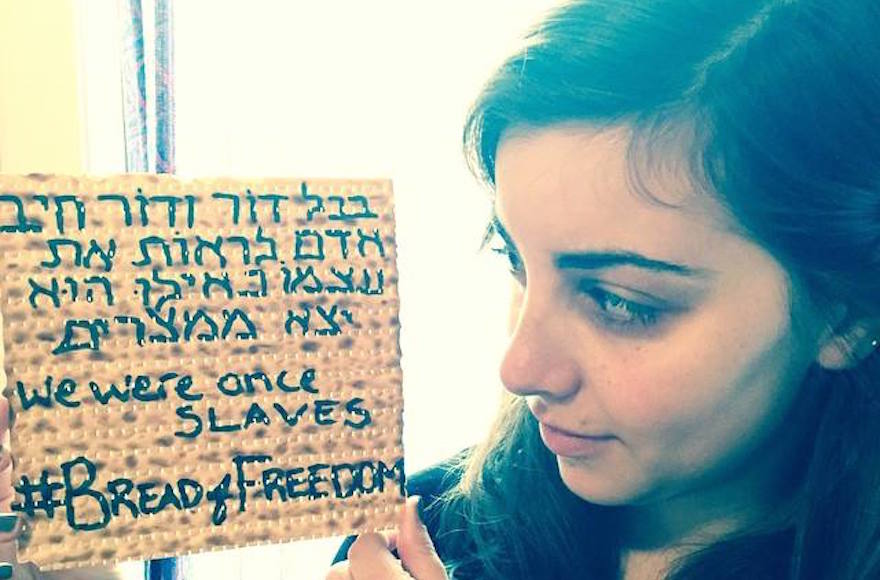 בכל דוֹר ודוֹר חיב
אדם לראוֹת את
עצמו כאילו הוא
יצא ממצרים
we were once
SLAVES
#BREADofFREEDOM